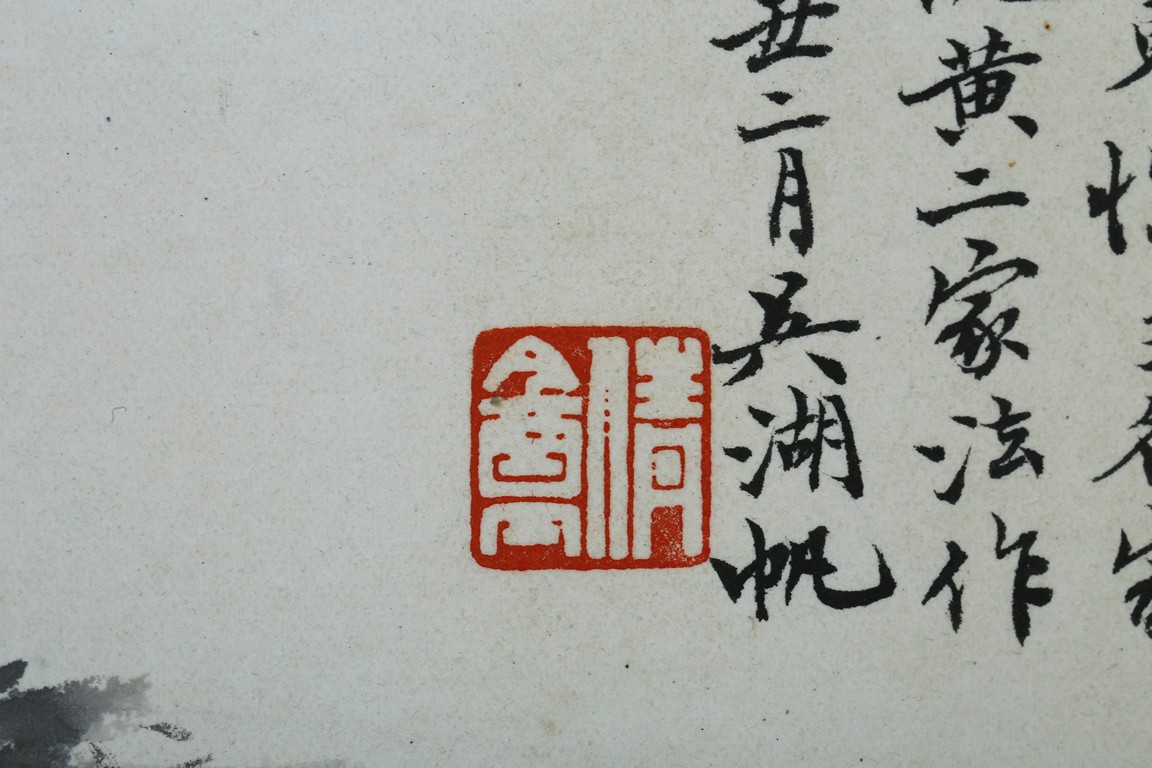 黄二家法作
丑二月吴湖帆
倩盦